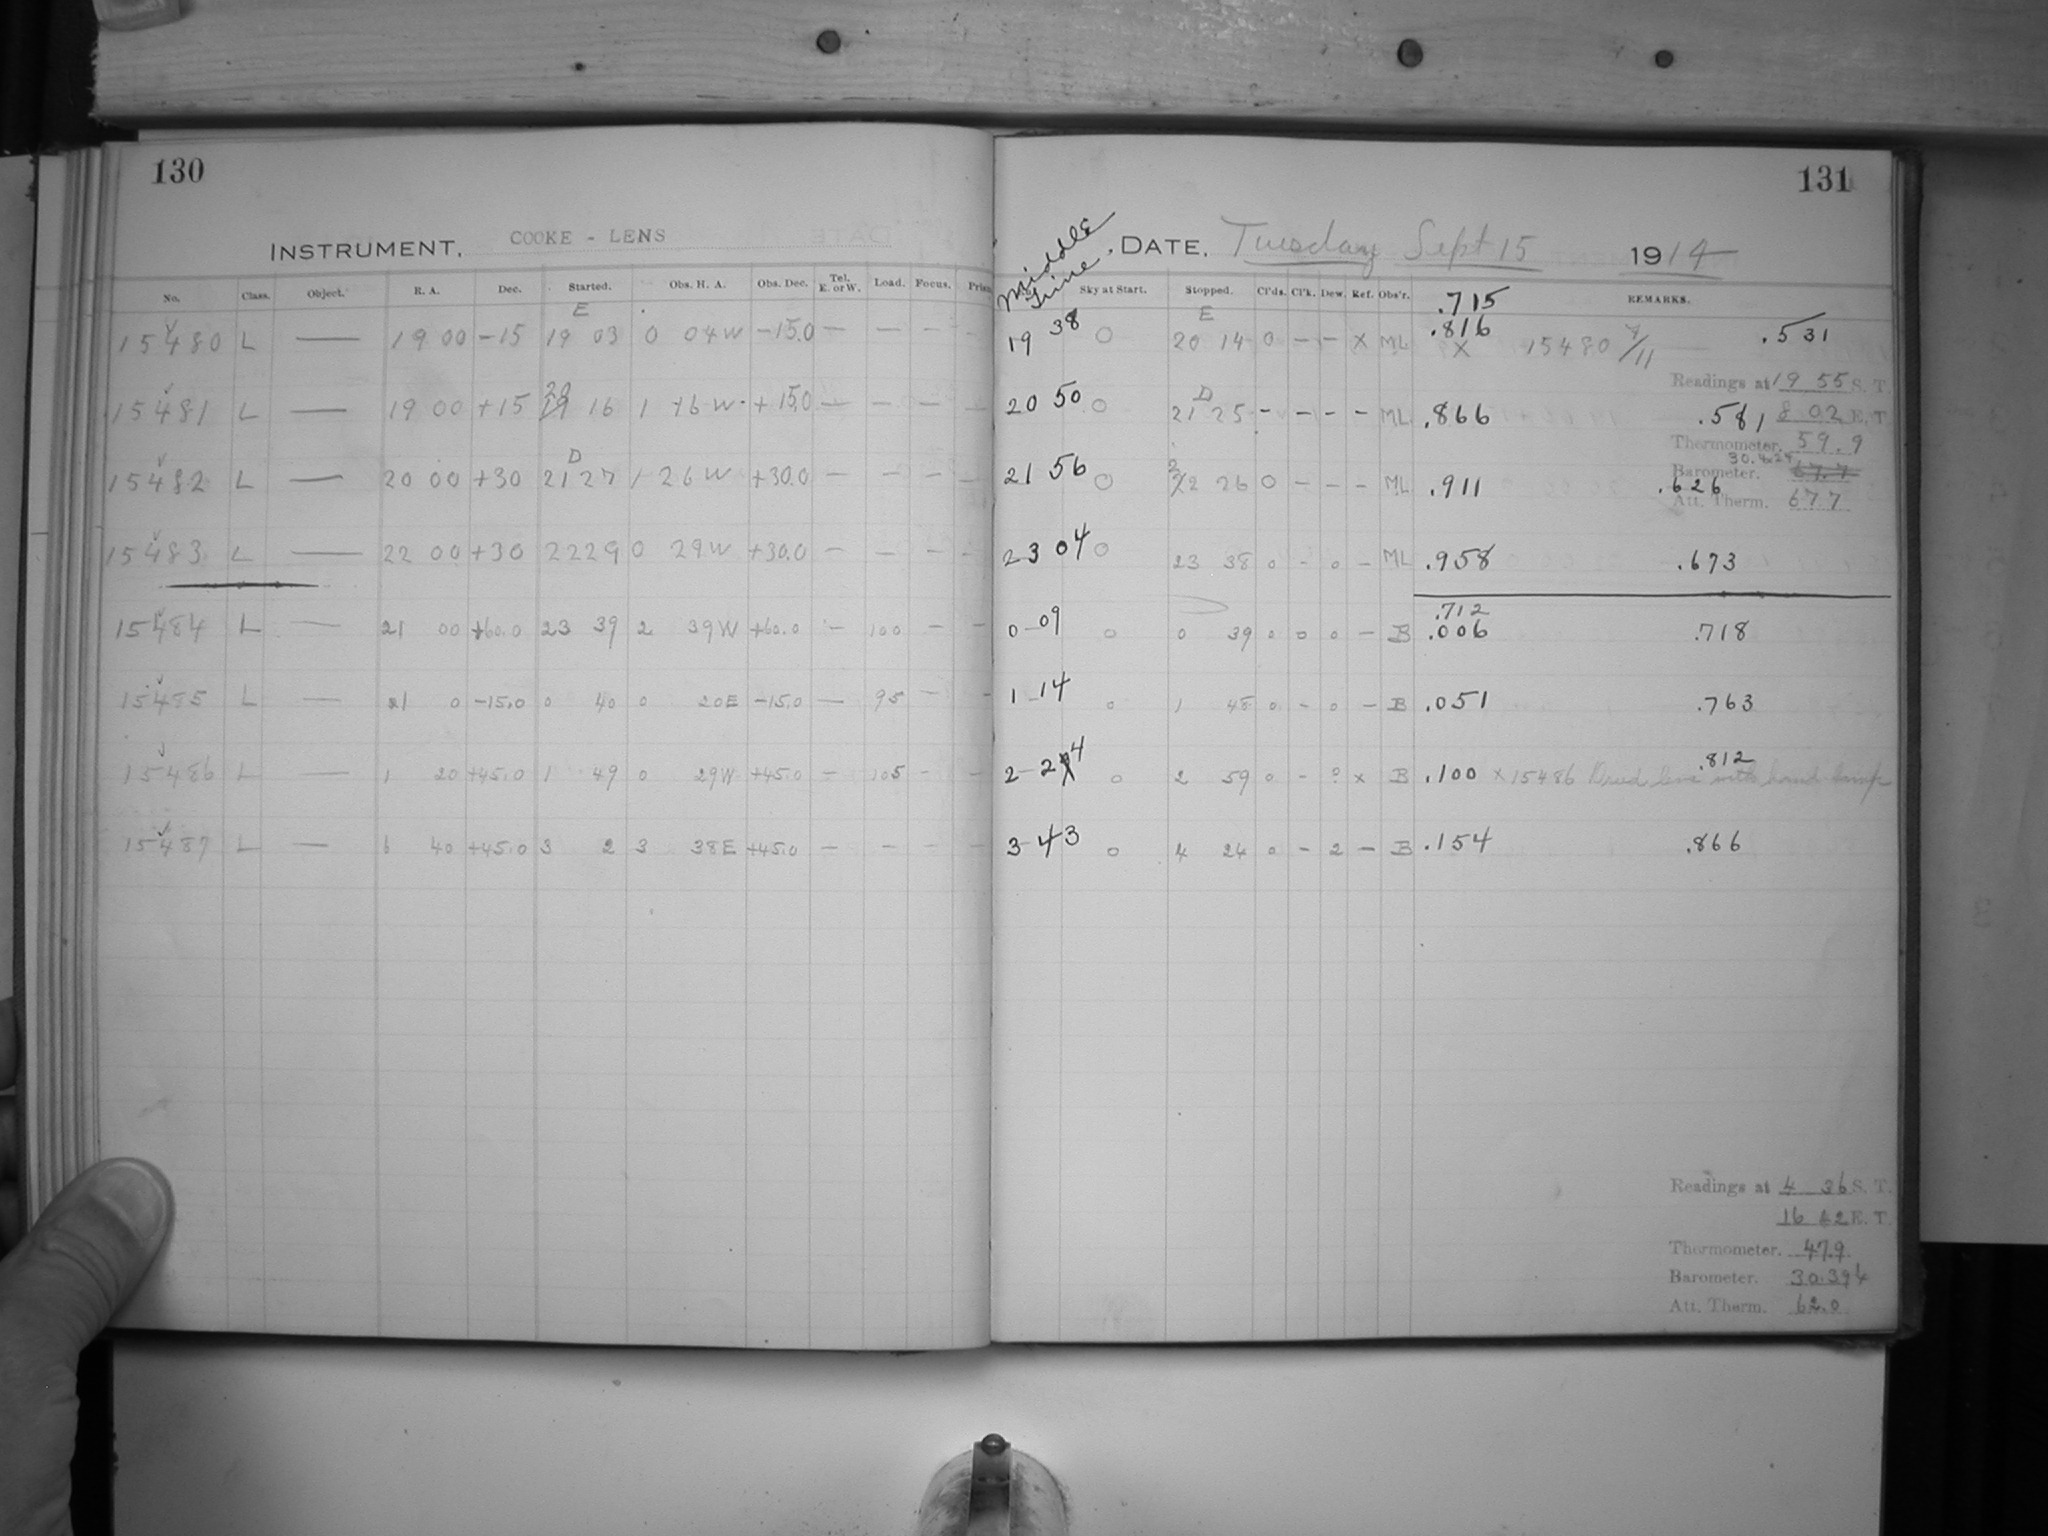 130
INSTRUMENT. COOKE - LENS
No. Class. Object. R. A. Dec. Started. Obs. H. A. Obs. Dec. Tel. E. or W. Load. Focus.
E
15480 L — 19 00 -15 19 03 0 04W -15.0 — — — —
15481 L — 19 00 +15 20 16 1 16W +15.0 — — — —
D
15482 L — 20 00 +30 21 27 1 26W +30.0 — — — —
15483 L — 22 00 +30 22 29 0 29W +30.0 — — — —
15484 L — 21 00 +60.0 23 39 2 39W +60.0 — 100 — —
15485 L — 21 0 -15.0 0 40 0 20E -15.0 — 95 — —
15486 L — 1 20 +45.0 1 49 0 29W +45.0 — 105 - —
15487 L — 6 40 +45.0 3 2 3 38E +45.0 — — — —
131
Middle Time
DATE. Tuesday Sept 15 1914
Sky at Start. Stopped. Cl'ds. Cl'k. Dew. Ref. Obs'r. REMARKS.
.715
E
19 38 0 20 14 0 — — X ML .816 X 15480 .531
Readings at 19 55 S. T.
D
20 50 0 21 25 - - - - ML .866 .581 8 02 E. T.
Thermometer. 59.9
Barometer.
21 56 0 22 26 0 - - - ML .911 .626
Att. Therm. 67.7
23 04 0 23 38 0 - 0 - ML .958 .673
.712
0 09 0 0 39 0 0 0 - B .006 .718
1 14 0 1 48 0 - 0 - B .051 .763
.812
2 24 0 2 59 0 - ? x B .100 x 15486 Dried lens with hand lamp
3 43 0 4 24 0 - 2 - B .154 .866
Readings at 4 36 S. T.
16 42 E. T.
Thermometer. 47.9
Barometer. 30.394
Att. Therm. 62.0